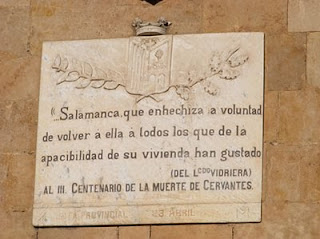 "Salamanca, que enhechiza a voluntad
de volver a ella á todos los que de la
apacibilidad de su vivienda han gustado
(DEL L.CDO VIDRIERA)
AL III. CENTENARIO DE LA MUERTE DE CERVANTES.
PROVINCIAL 23 ABRIL